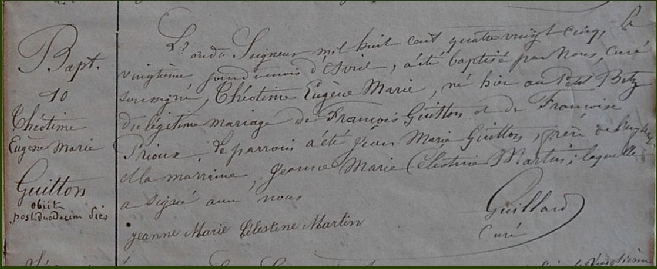 Bapt.
10
Théotime
Eugène Marie
Guitton
obiit
post duodecim dies
L'an du Seigneur mil huit cent quatre vingt cinq, le
vingtième jour du mois d'Avril, a été baptisé par Nous, curé
soussigné, Théotime Eugène Marie, né hier au Petit
du légitime mariage de François Guitton et de Françoise
Le parrain a été Jean Marie Guitton, frère
et la marraine, Jeanne Marie Célestine Martin, laquelle
a signé avec nous
Guillard
Curé
Jeanne Marie Célestine Martin